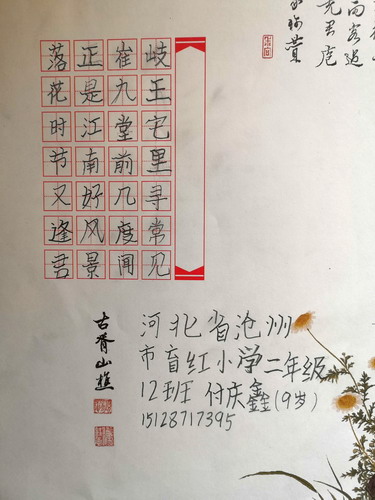 岐王宅里寻常见
崔九堂前几度闻
正是江南好风景
落花时节又逢君
古脊山樵
河北省沧州
市育红小学二年级
12班 付庆鑫(9岁)
15128717395